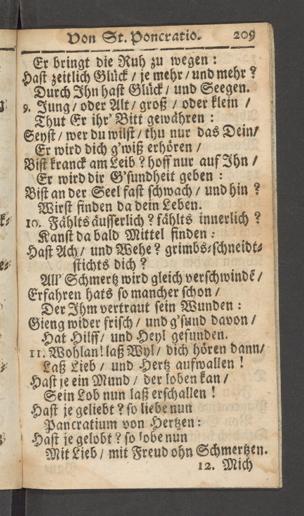 Von St. Poncratio. 209
Er bringt die Ruh zu wegen:
Hast zeitlich Glück / je mehr / und mehr?
Durch Ihn hast Glück / und Seegen.
9. Jung / oder Alt / groß / oder klein /
Thut Er ihr' Bitt gewähren:
Seyst / wer du wilst / thu nur das Dein /
Er wird dich g'wiß erhören /
Bist kranck am Leib? hoff nur auf Ihn /
Er wird dir G'sundheit geben:
Bist an der Seel fast schwach / und hin?
Wirst finden da dein Leben.
10. Fählts äusserlich? fählts innerlich?
Kanst da bald Mittel finden:
Hast Ach / und Wehe? grimbs-schneidt-
stichts dich?
All' Schmertz wird gleich verschwindt /
Erfahren hats so mancher schon /
Der Ihm vertraut sein Wunden:
Gieng wider frisch / und g'sund davon /
Hat Hilff / und Heyl gefunden.
11. Wohlan! laß Wyl / dich hören dann /
Laß Lieb / und Hertz aufwallen!
Hast je ein Mund / der loben kan /
Sein Lob nun laß erschallen!
Hast je geliebt? so liebe nun
Pancratium von Hertzen:
Hast je gelobt? so lobe nun
Mit Lieb / mit Freud ohn Schmertzen.
12. Mich